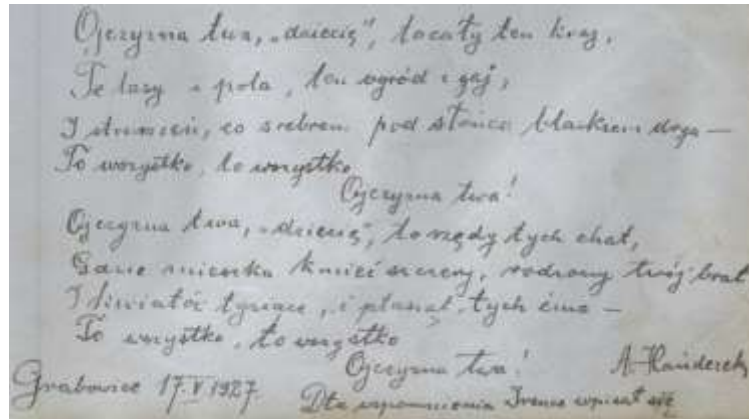 Ojczyzna twa, „dziecię", to cały ten kraj,
Te lasy i pola, ten ogród i gaj,
I strumień, co srebrem pod słońca blaskiem drga —
To wszystko, to wszystko
Ojczyzna twa!
Ojczyzna twa, „dziecię", to rzędy tych chat,
Gdzie mieszka kmieć szczery, rodzony twój brat
I kwiatów tysiące, i ptasząt tych ćma —
To wszystko, to wszystko
Ojczyzna twa!
A. Hańderek
Grabowiec 17.V 1927.
Dla wspomnienia Irence wpisał się